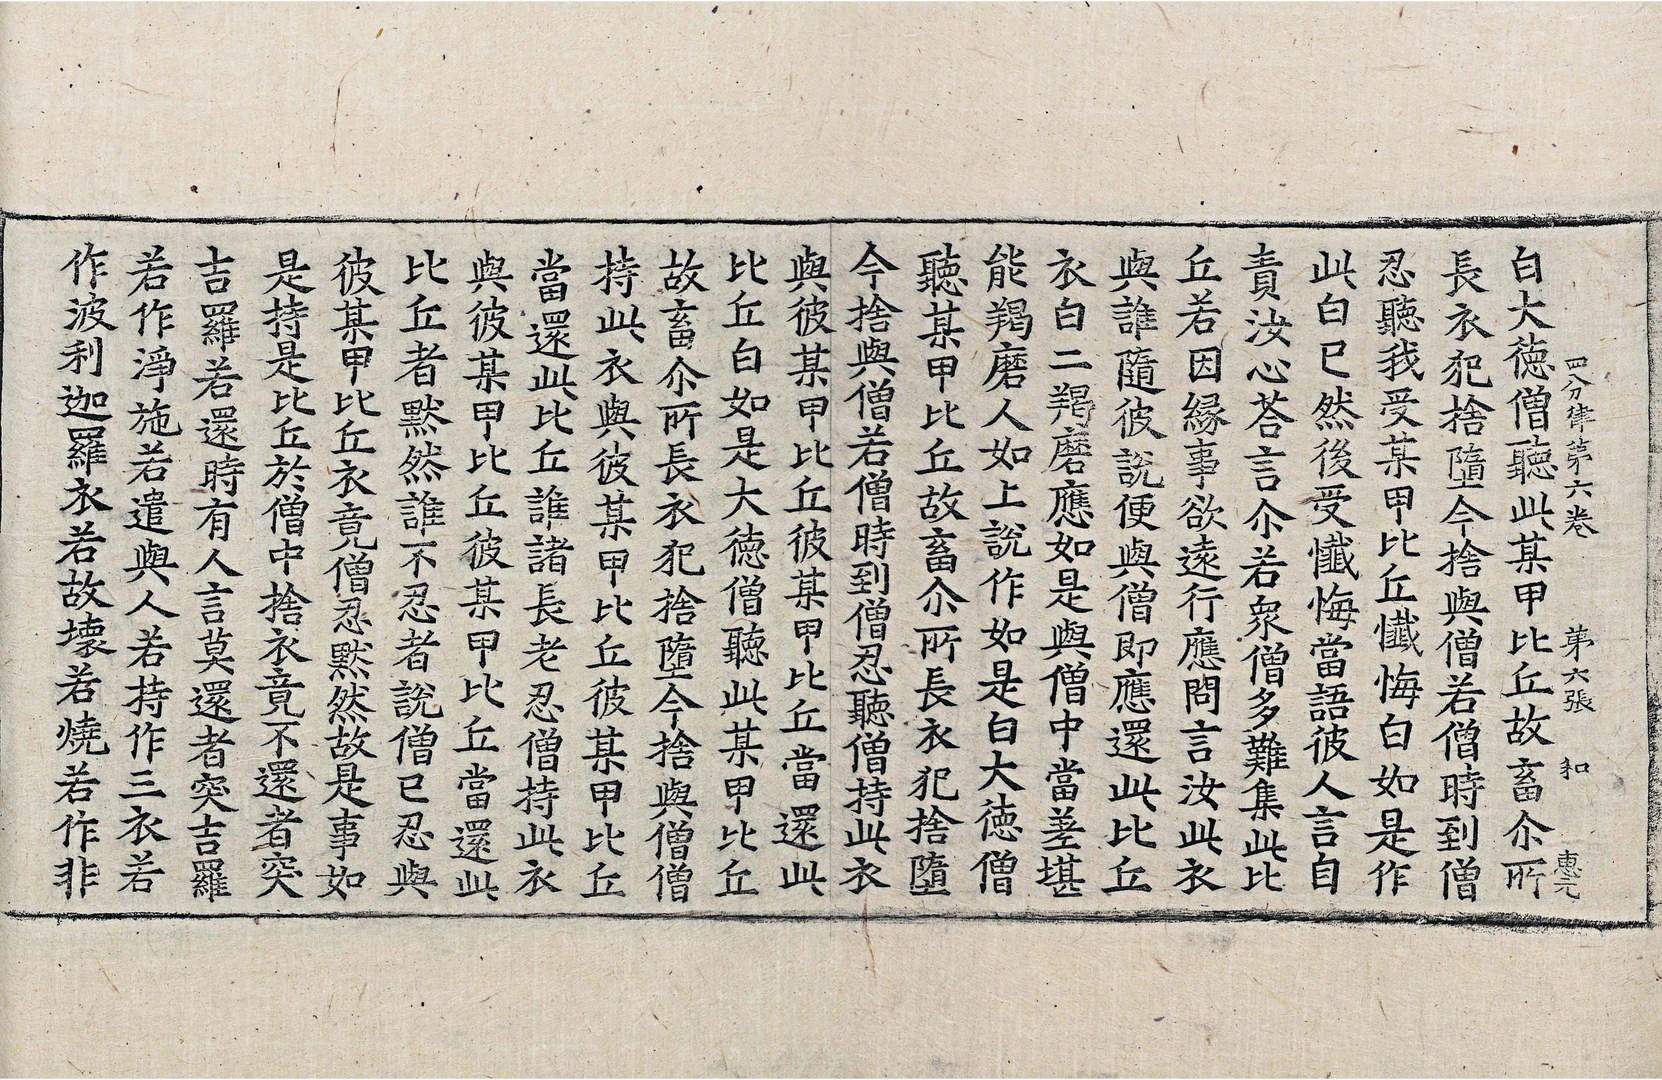 四分律第六卷 第六張 和 惠元
白大徳僧聽此某甲比丘故畜尒所
長衣犯捨墮今捨與僧若僧時到僧
忍聽我受某甲比丘懺悔白如是作
此白已然後受懺悔當語彼人言自
責汝心荅言尒若衆僧多難集此比
丘若因緣事欲遠行應問言汝此衣
與誰隨彼說便與僧即應還此比丘
衣白二羯磨應如是與僧中當差堪
能羯磨人如上說作如是白大徳僧
聽某甲比丘故畜尒所長衣犯捨墮
今捨與僧若僧時到僧忍聽僧持此衣
與彼某甲比丘彼某甲比丘當還此
比丘白如是大徳僧聽此某甲比丘
故畜尒所長衣犯捨墮今捨與僧僧
持此衣與彼某甲比丘彼某甲比丘
當還此比丘誰諸長老忍僧持此衣
與彼某甲比丘彼某甲比丘當還此
比丘者默然誰不忍者說僧已忍與
彼某甲比丘衣竟僧忍默然故是事如
是持是比丘於僧中捨衣竟不還者突
吉羅若還時有人言莫還者突吉羅
若作淨施若遣與人若持作三衣若
作波利迦羅衣若故壞若燒若作非